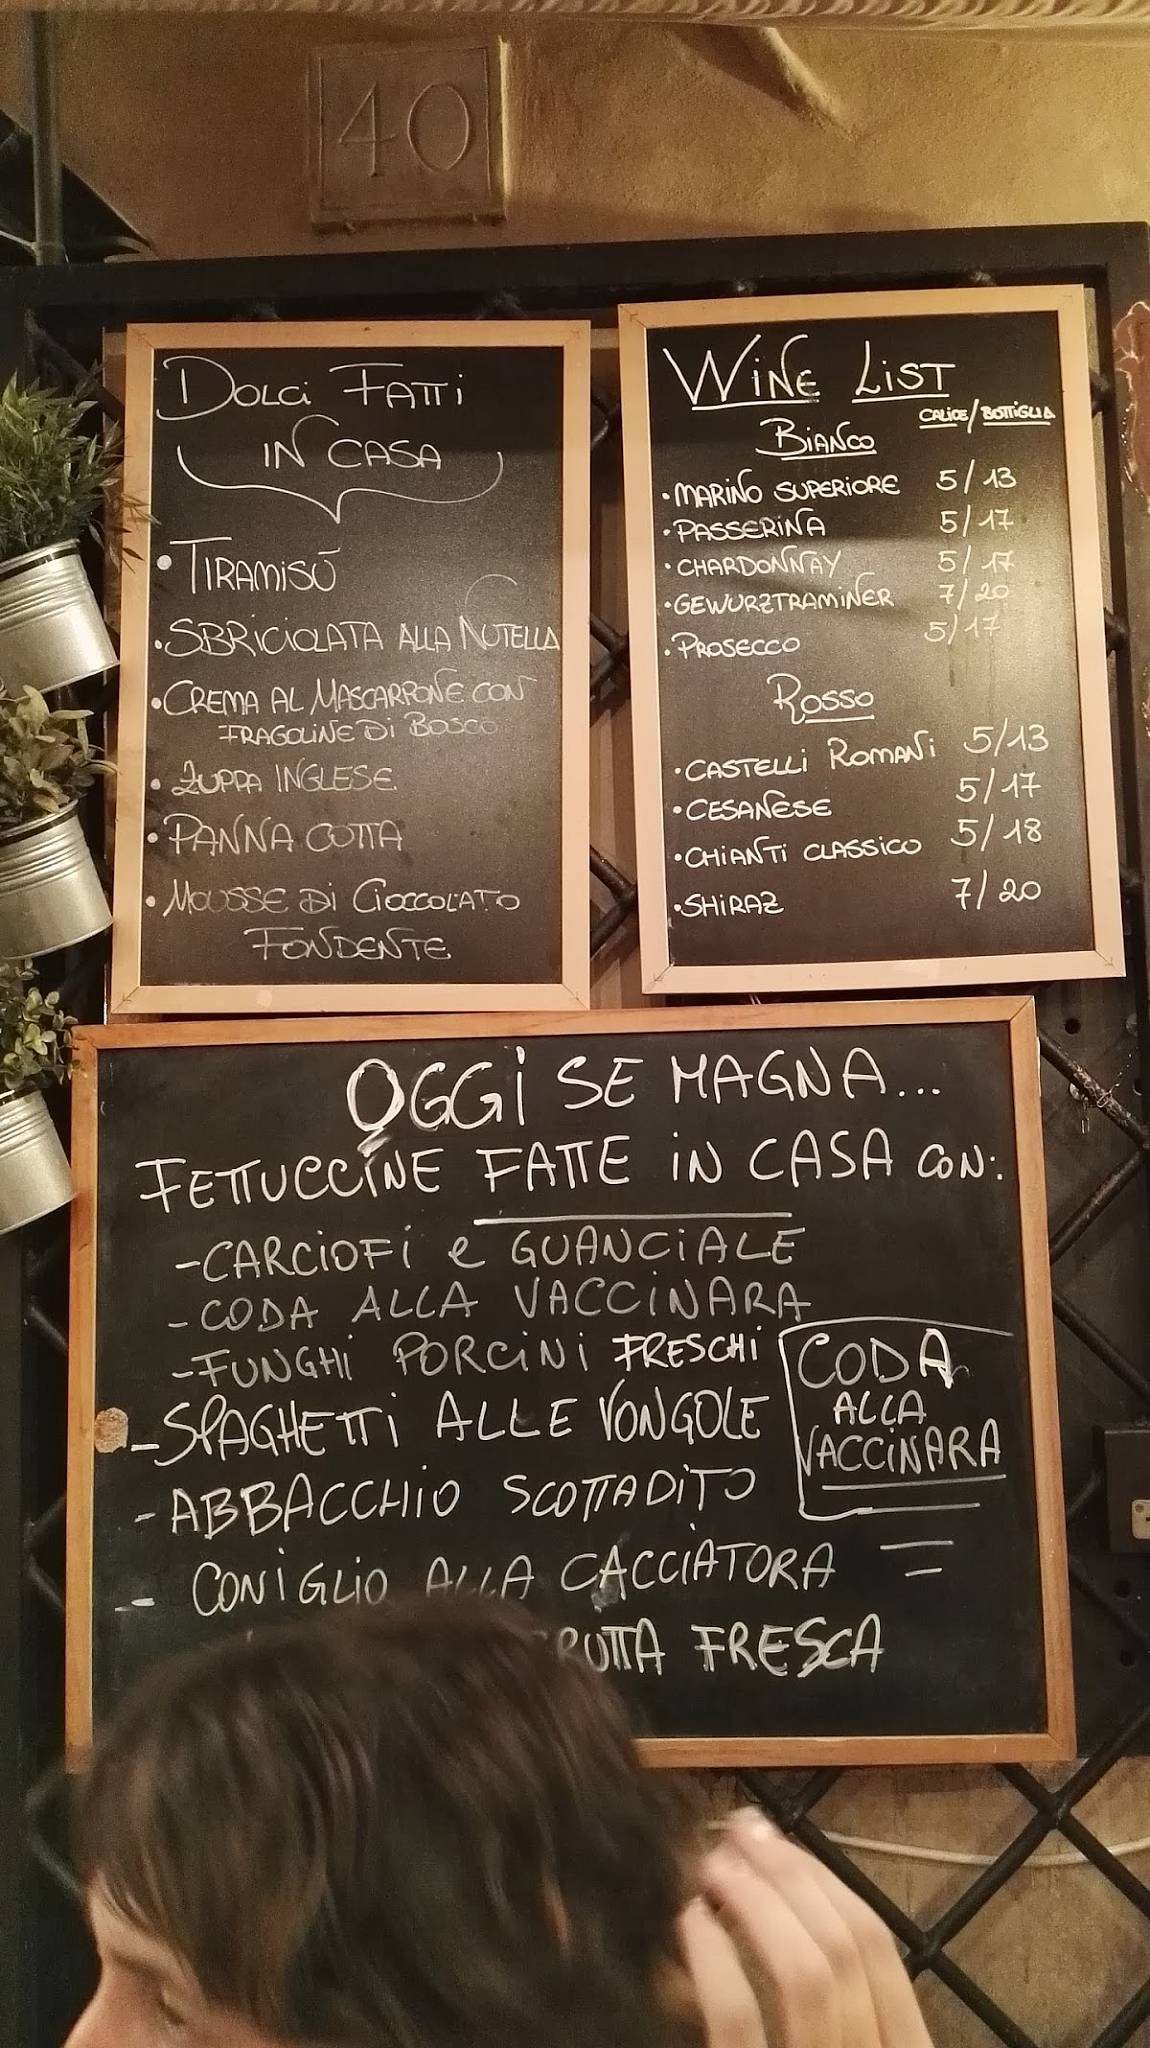 40
DOLCI FATTI
IN CASA
• TIRAMISÙ
• SBRICIOLATA ALLA NUTELLA
• CREMA AL MASCARPONE CON
FRAGOLINE DI BOSCO
• ZUPPA INGLESE
• PANNA COTTA
• MOUSSE DI CIOCCOLATO
FONDENTE
WINE LIST
CALICE/BOTTIGLIA
BIANCO
• MARINO SUPERIORE 5/13
• PASSERINA 5/17
• CHARDONNAY 5/17
• GEWURZTRAMINER 7/20
• PROSECCO 5/17
ROSSO
• CASTELLI ROMANI 5/13
• CESANESE 5/17
• CHIANTI CLASSICO 5/18
• SHIRAZ 7/20
OGGI SE MAGNA...
FETTUCCINE FATTE IN CASA CON:
- CARCIOFI e GUANCIALE
- CODA ALLA VACCINARA
- FUNGHI PORCINI FRESCHI
- SPAGHETTI ALLE VONGOLE
- ABBACCHIO SCOTTADITO
- CONIGLIO ALLA CACCIATORA
FRUTTA FRESCA
CODA
ALLA
VACCINARA